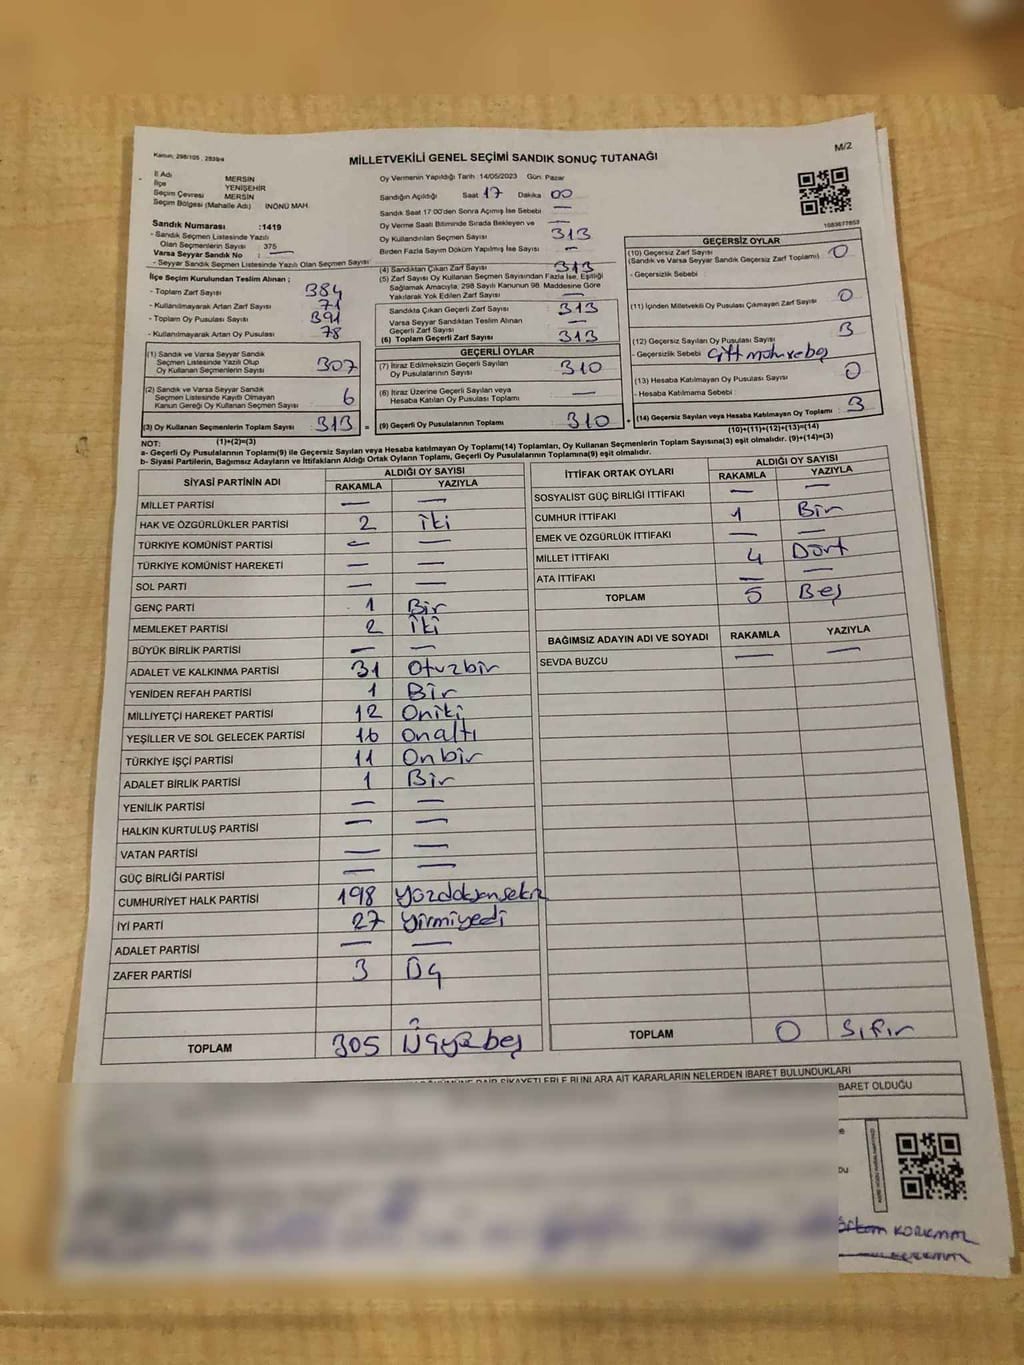 Kanun; 298/105 , 2839/4
MİLLETVEKİLİ GENEL SEÇİMİ SANDIK SONUÇ TUTANAĞI
M/2
1083677853
İl Adı MERSİN
İlçe YENİŞEHİR
Seçim Çevresi MERSİN
Seçim Bölgesi (Mahalle Adı) İNÖNÜ MAH.
Sandık Numarası :1419
- Sandık Seçmen Listesinde Yazılı
Olan Seçmenlerin Sayısı : 375
Varsa Seyyar Sandık No : —
- Seyyar Sandık Seçmen Listesinde Yazılı Olan Seçmen Sayısı
İlçe Seçim Kurulundan Teslim Alınan ;
- Toplam Zarf Sayısı 384
- Kullanılmayarak Artan Zarf Sayısı 71
- Toplam Oy Pusulası Sayısı 391
- Kullanılmayarak Artan Oy Pusulası 78
(1) Sandık ve Varsa Seyyar Sandık
Seçmen Listesinde Yazılı Olup
Oy Kullanan Seçmenlerin Sayısı 307
(2) Sandık ve Varsa Seyyar Sandık
Seçmen Listesinde Kayıtlı Olmayan
Kanun Gereği Oy Kullanan Seçmen Sayısı 6
(3) Oy Kullanan Seçmenlerin Toplam Sayısı 313 =
(1)+(2)=(3)
Oy Vermenin Yapıldığı Tarih :14/05/2023 Gün: Pazar
Sandığın Açıldığı Saat 17 Dakika 00
Sandık Saat 17:00'den Sonra Açımış İse Sebebi —
Oy Verme Saati Bitiminde Sırada Bekleyen ve —
Oy Kullandırılan Seçmen Sayısı 313
Birden Fazla Sayım Döküm Yapılmış İse Sayısı —
(4) Sandıktan Çıkan Zarf Sayısı 313
(5) Zarf Sayısı Oy Kullanan Seçmen Sayısından Fazla İse, Eşitliği
Sağlamak Amacıyla, 298 Sayılı Kanunun 98. Maddesine Göre
Yakılarak Yok Edilen Zarf Sayısı —
Sandıkta Çıkan Geçerli Zarf Sayısı 313
Varsa Seyyar Sandıktan Teslim Alınan
Geçerli Zarf Sayısı —
(6) Toplam Geçerli Zarf Sayısı 313
GEÇERLİ OYLAR
(7) İtiraz Edilmeksizin Geçerli Sayılan
Oy Pusulalarının Sayısı 310
(8) İtiraz Üzerine Geçerli Sayılan veya
Hesaba Katılan Oy Pusulası Toplamı —
(9) Geçerli Oy Pusulalarının Toplamı 310 +
GEÇERSİZ OYLAR
(10) Geçersiz Zarf Sayısı 0
(Sandık ve Varsa Seyyar Sandık Geçersiz Zarf Toplamı)
- Geçersizlik Sebebi :
(11) İçinden Milletvekili Oy Pusulası Çıkmayan Zarf Sayısı 0
(12) Geçersiz Sayılan Oy Pusulası Sayısı 3
- Geçersizlik Sebebi :
(13) Hesaba Katılmayan Oy Pusulası Sayısı 0
- Hesaba Katmama Sebebi :
(14) Geçersiz Sayılan veya Hesaba Katılmayan Oy Toplamı 3
(10)+(11)+(12)+(13)=(14)
NOT:
a- Geçerli Oy Pusulalarının Toplamı(9) ile Geçersiz Sayılan veya Hesaba katılmayan Oy Toplamı(14) Toplamları, Oy Kullanan Seçmenlerin Toplam Sayısına(3) eşit olmalıdır. (9)+(14)=(3)
b- Siyasi Partilerin, Bağımsız Adayların ve İttifakların Aldığı Ortak Oyların Toplamı, Geçerli Oy Pusulalarının Toplamına(9) eşit olmalıdır.
SİYASİ PARTİNİN ADI ALDIĞI OY SAYISI
RAKAMLA YAZIYLA
MİLLET PARTİSİ — —
HAK VE ÖZGÜRLÜKLER PARTİSİ 2 İki
TÜRKİYE KOMÜNİST PARTİSİ — —
TÜRKİYE KOMÜNİST HAREKETİ — —
SOL PARTİ — —
GENÇ PARTİ 1 Bir
MEMLEKET PARTİSİ 2 İki
BÜYÜK BİRLİK PARTİSİ — —
ADALET VE KALKINMA PARTİSİ 31 Otuzbir
YENİDEN REFAH PARTİSİ 1 Bir
MİLLİYETÇİ HAREKET PARTİSİ 12 Oniki
YEŞİLLER VE SOL GELECEK PARTİSİ 16 onaltı
TÜRKİYE İŞÇİ PARTİSİ 11 Onbir
ADALET BİRLİK PARTİSİ 1 Bir
YENİLİK PARTİSİ — —
HALKIN KURTULUŞ PARTİSİ — —
VATAN PARTİSİ — —
GÜÇ BİRLİĞİ PARTİSİ — —
CUMHURİYET HALK PARTİSİ 198 yüzdoksansekiz
İYİ PARTİ 27 yirmiyedi
ADALET PARTİSİ — —
ZAFER PARTİSİ 3 Üç
TOPLAM 305 Üçyüzbeş
İTTİFAK ORTAK OYLARI ALDIĞI OY SAYISI
RAKAMLA YAZIYLA
SOSYALİST GÜÇ BİRLİĞİ İTTİFAKI — —
CUMHUR İTTİFAKI 1 Bir
EMEK VE ÖZGÜRLÜK İTTİFAKI — —
MİLLET İTTİFAKI 4 Dört
ATA İTTİFAKI — —
TOPLAM 5 Beş
BAĞIMSIZ ADAYIN ADI VE SOYADI RAKAMLA YAZIYLA
SEVDA BUZCU — —
TOPLAM 0 Sıfır
DAİR ŞİKAYETLERLE BUNLARA AİT KARARLARIN NELERDEN İBARET BULUNDUKLARI
BARET OLDUĞU
KORKMAZ